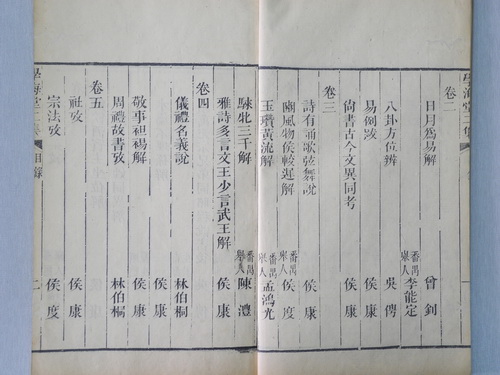 學海堂二集
卷二
日月爲易解 曾釗
番禺舉人 李能定
八卦方位辨 吳俜
易例跋 侯康
尙書古今文異同考
卷三
詩有誦歌弦舞說 侯康
豳風物侯較遲解 番禺舉人 侯度
玉瓚黃流解 番禺舉人 孟鴻光
騋牝三千解 番禺舉人 陳澧
雅詩多言文王少言武王解 侯康
卷四
儀禮名義說 林伯桐
敬事袒裼解 侯康
周禮故書攷 林伯桐
卷五
社攷 侯康
宗法攷 侯度
學海堂二集 目錄 二